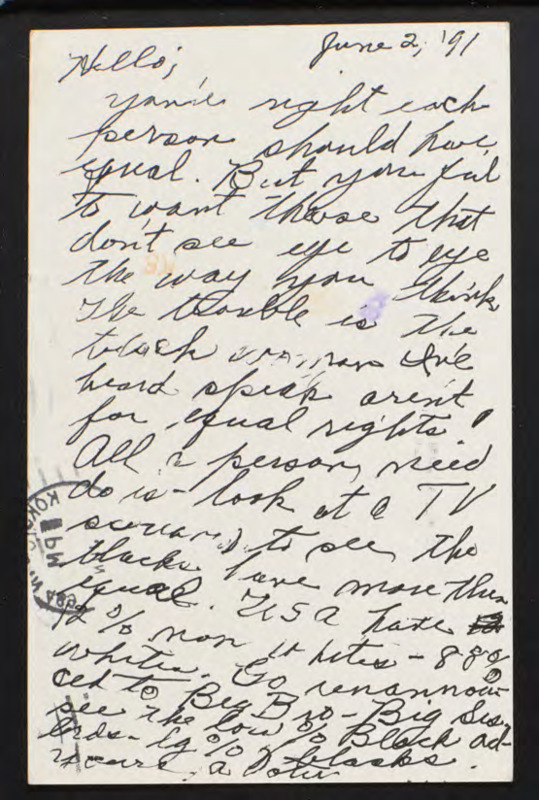 June 2, '91
Hello;
you're right each
person should have
equal. But you fail
to want those that
don't see eye to eye
the way you think
The trouble is the
black woman I've
heard speak aren't
for equal rights.
All a person need
do is - look at a TV
screen, to see the
blacks have more then
equal. USA have
12% non whites - 88%
whites. Go
to Big Bro - Big Sis.
see the low % Black ad-
lg % blacks.